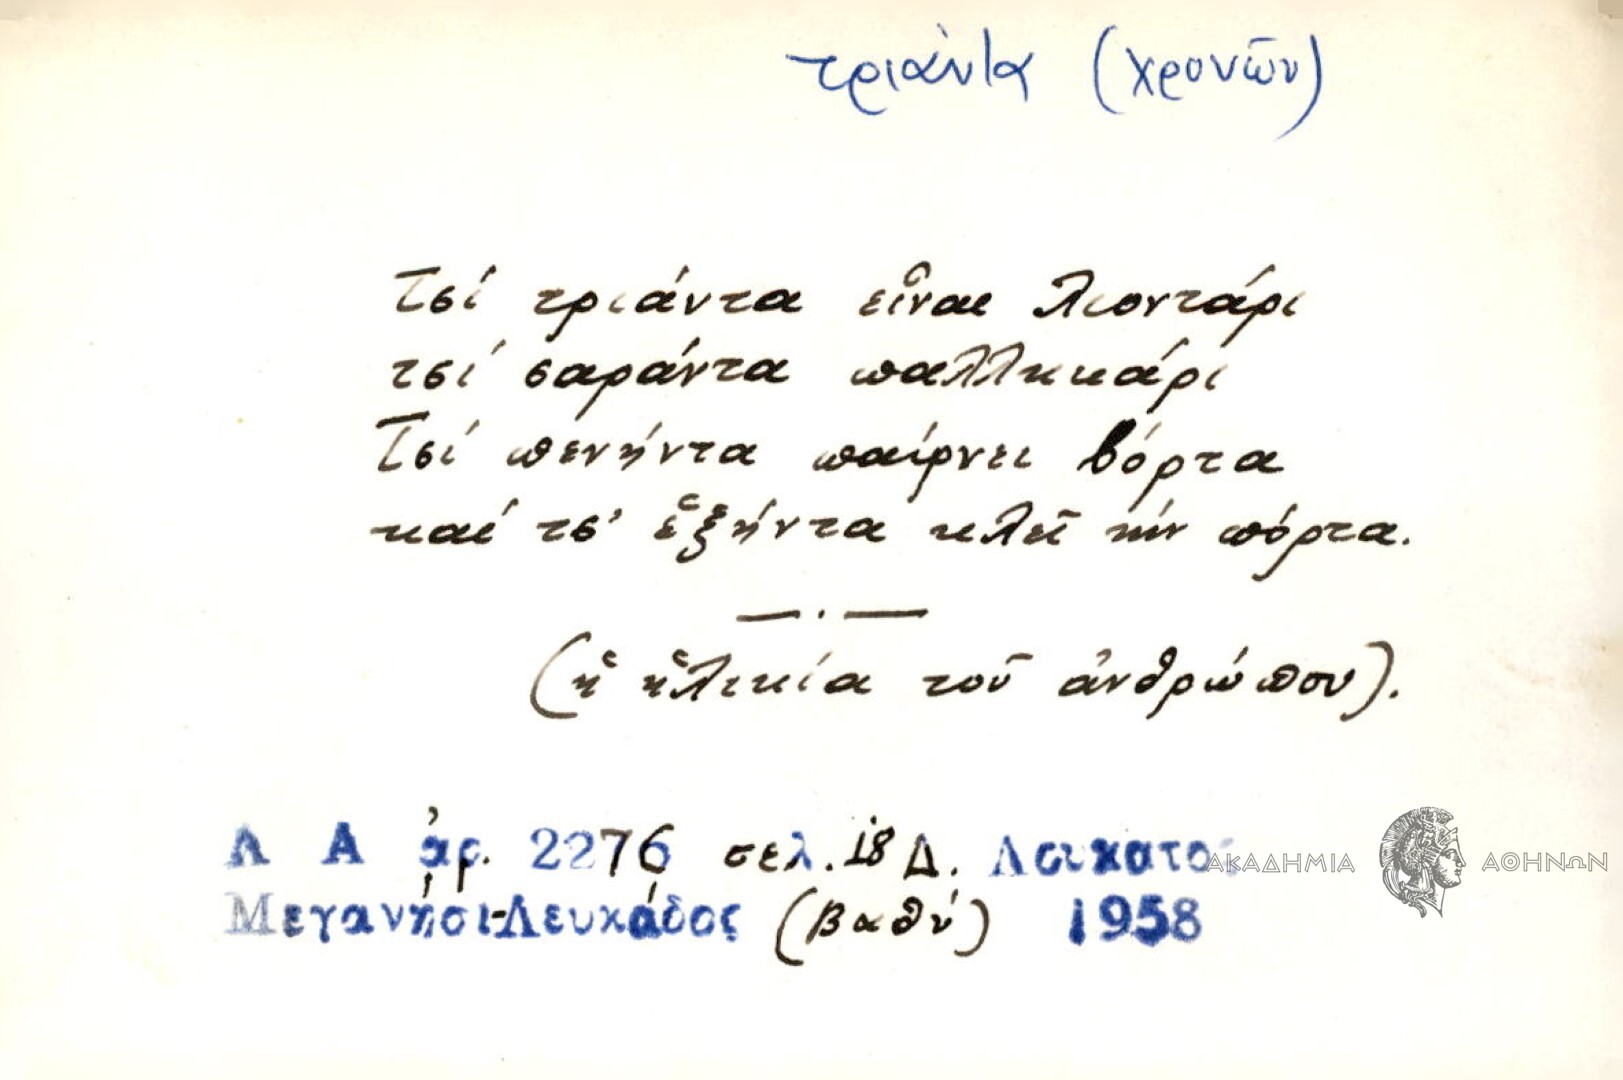 τριάντα (χρονῶν)
Τσί τριάντα εἶναι λιοντάρι
τσί σαράντα παλληκάρι
Τσί πενήντα παίρνει βόρτα
καί τσ' ἑξήντα κλεῖ τήν πόρτα.
(ἡ ἡλικία τοῦ ἀνθρώπου).
Λ Α ἀρ. 2276 σελ. 18 Δ. Λουκατος
ΑΚΑΔΗΜΙΑ ΑΘΗΝΩΝ
Μεγανήσι-Λευκάδος (Βαθύ) 1958